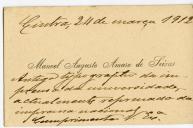 Cintra, 24 de março 1912
Manoel Augusto Amaro de Seixas
Antigo typographo da im
prensa da universidade,
actualmente reformado da
imprensa nacional
Cumprimenta V. Ex.ª